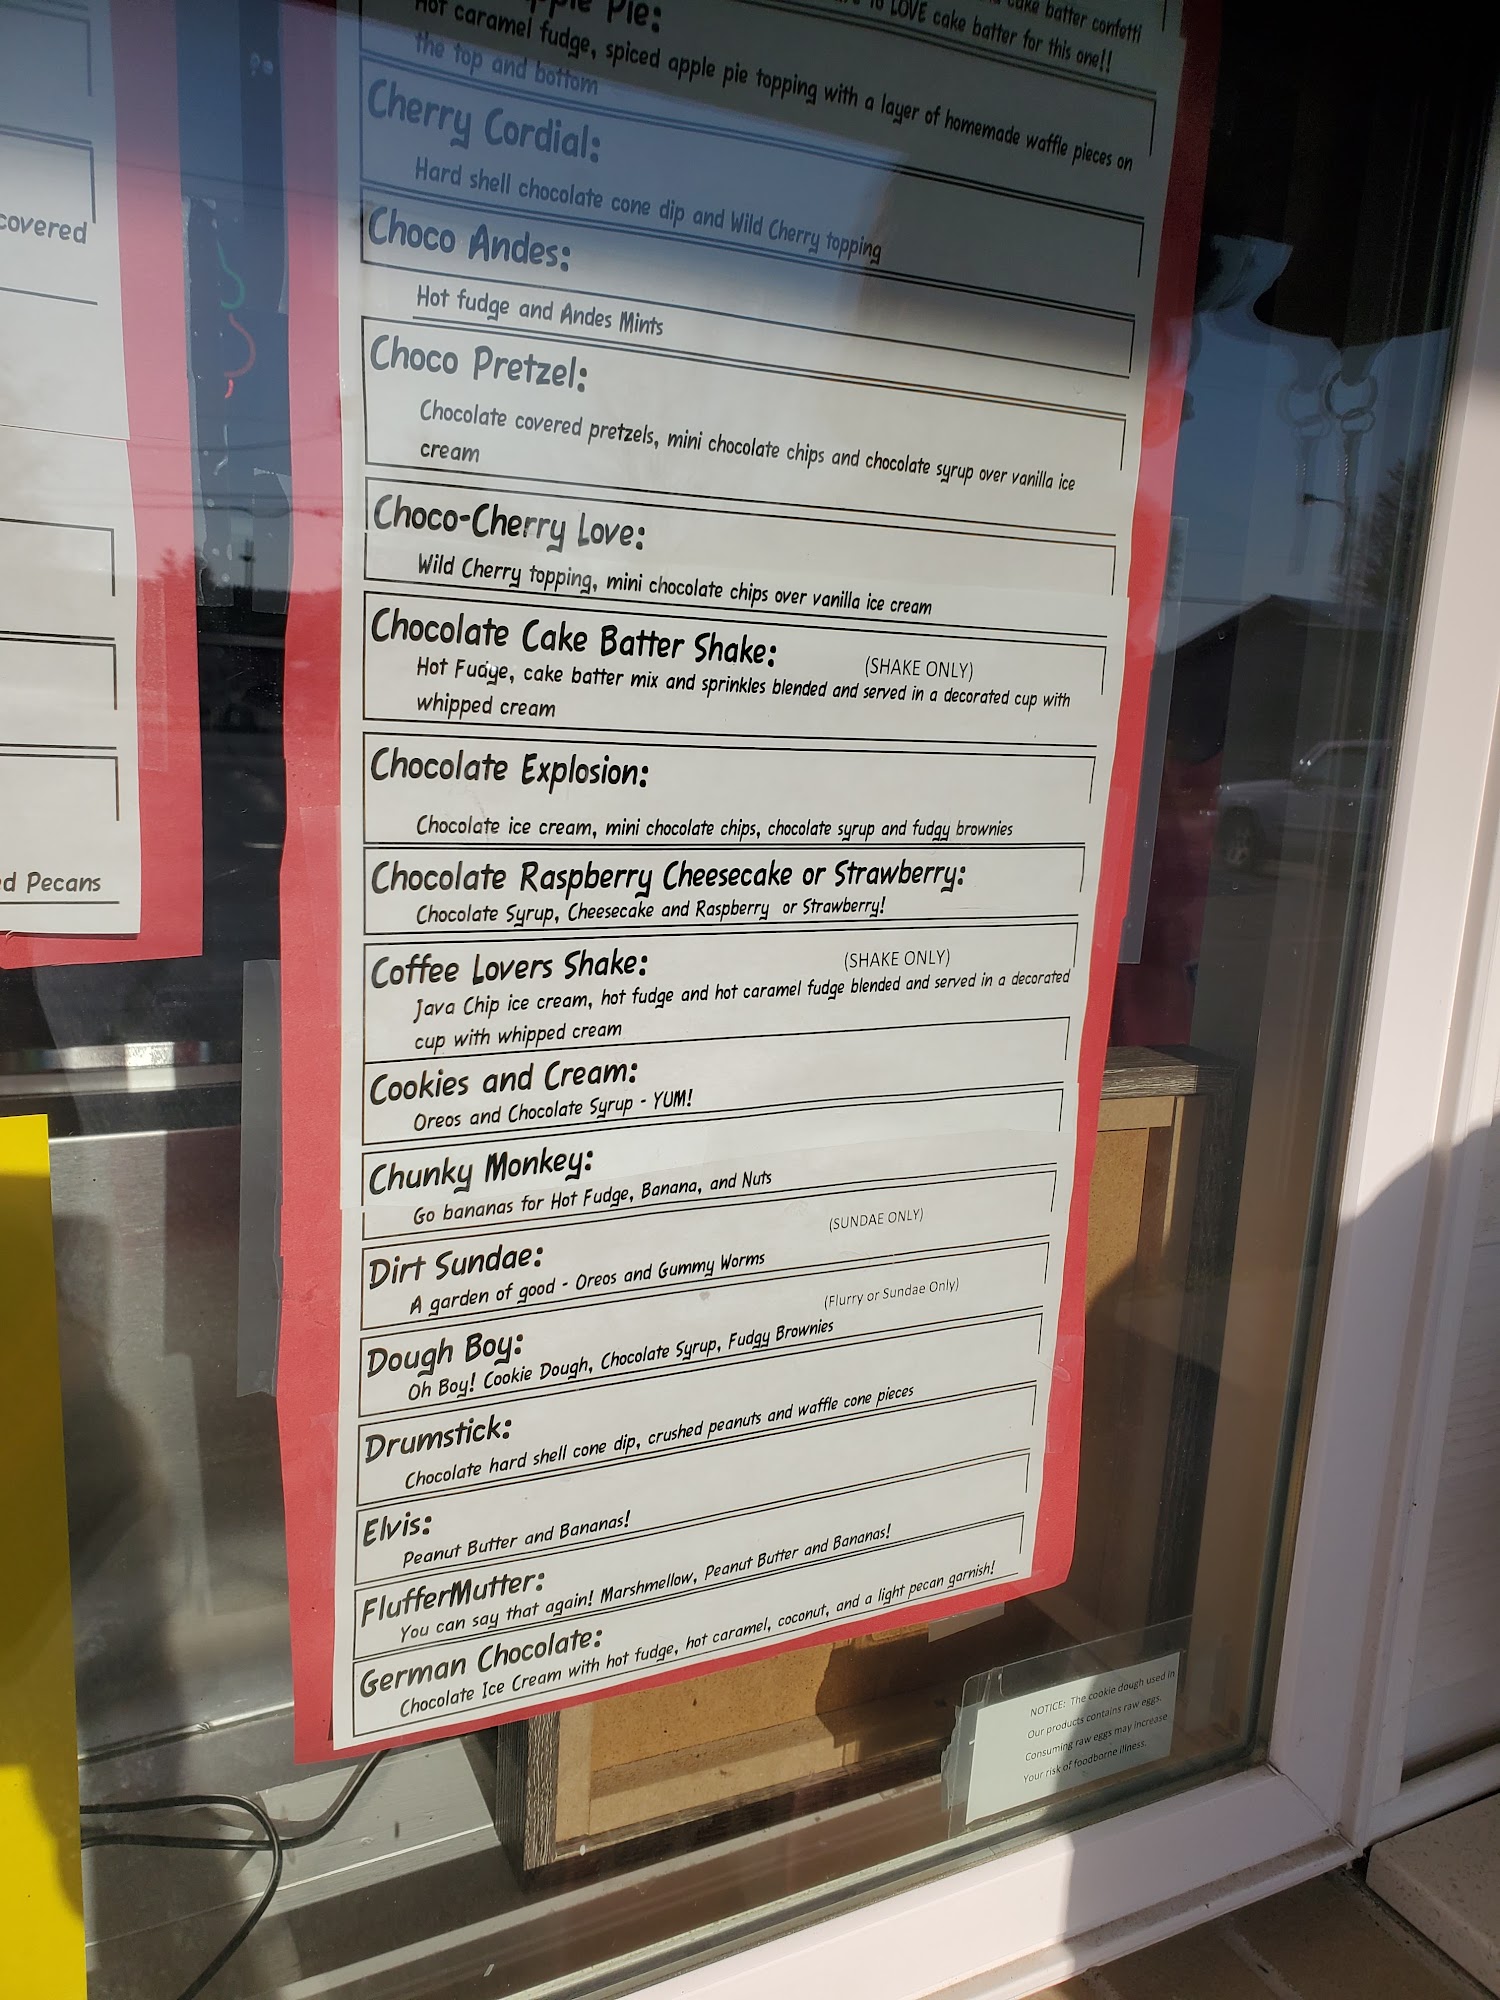 cake batter confetti
to LOVE cake batter for this one!!
Pie:
Hot caramel fudge, spiced apple pie topping with a layer of homemade waffle pieces on
the top and bottom
Cherry Cordial:
Hard shell chocolate cone dip and Wild Cherry topping
Choco Andes:
Hot fudge and Andes Mints
Choco Pretzel:
Chocolate covered pretzels, mini chocolate chips and chocolate syrup over vanilla ice
cream
Choco-Cherry Love:
Wild Cherry topping, mini chocolate chips over vanilla ice cream
Chocolate Cake Batter Shake: (SHAKE ONLY)
Hot Fudge, cake batter mix and sprinkles blended and served in a decorated cup with
whipped cream
Chocolate Explosion:
Chocolate ice cream, mini chocolate chips, chocolate syrup and fudgy brownies
Chocolate Raspberry Cheesecake or Strawberry:
Chocolate Syrup, Cheesecake and Raspberry or Strawberry!
Coffee Lovers Shake: (SHAKE ONLY)
Java Chip ice cream, hot fudge and hot caramel fudge blended and served in a decorated
cup with whipped cream
Cookies and Cream:
Oreos and Chocolate Syrup - YUM!
Chunky Monkey:
Go bananas for Hot Fudge, Banana, and Nuts
Dirt Sundae: (SUNDAE ONLY)
A garden of good - Oreos and Gummy Worms
Dough Boy: (Flurry or Sundae Only)
Oh Boy! Cookie Dough, Chocolate Syrup, Fudgy Brownies
Drumstick:
Chocolate hard shell cone dip, crushed peanuts and waffle cone pieces
Elvis:
Peanut Butter and Bananas!
FlufferMutter:
You can say that again! Marshmellow, Peanut Butter and Bananas!
German Chocolate:
Chocolate Ice Cream with hot fudge, hot caramel, coconut, and a light pecan garnish!
covered
Pecans
NOTICE: The cookie dough used in
Our products contains raw eggs.
Consuming raw eggs may increase
Your risk of foodborne illness.